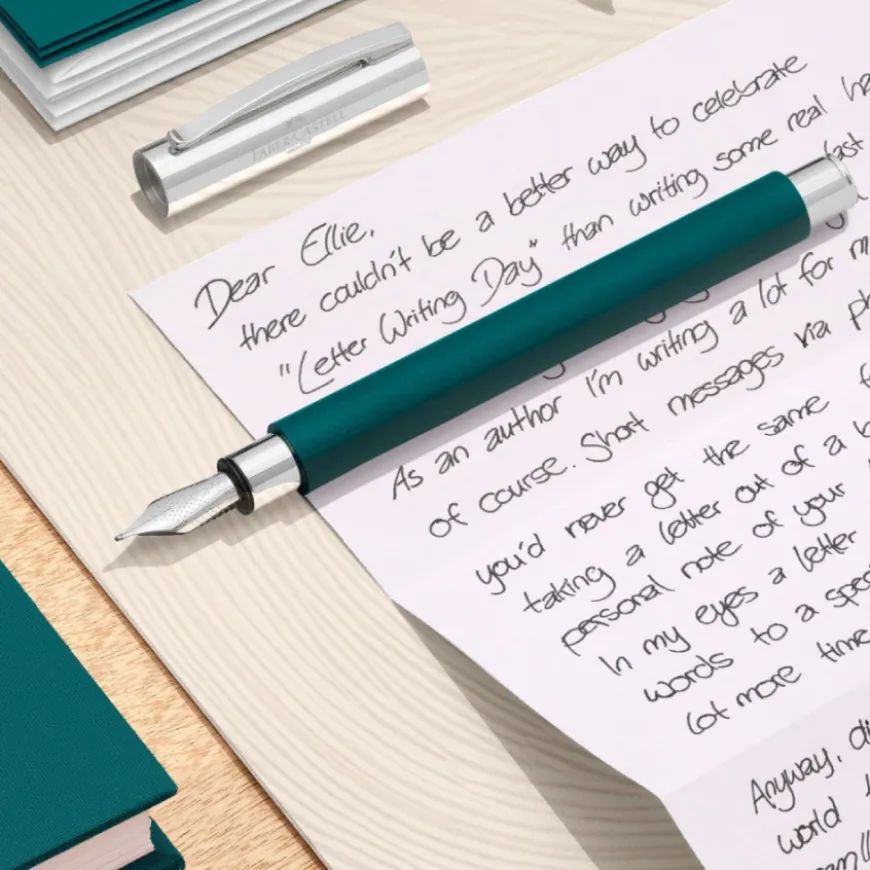 FABER-CASTELL
Dear Ellie,
there couldn't be a better way to celebrate
"Letter Writing Day" than writing some real
last
As an author I'm writing a lot for
of course. Short messages via
you'd never get the same
taking a letter out of a
personal note of your
In my eyes a letter
words to a
lot more time
Anyway,
world